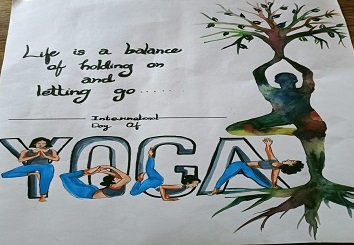 Life is a balance
of holding on
and
letting go.......
International
Day Of
YOGA